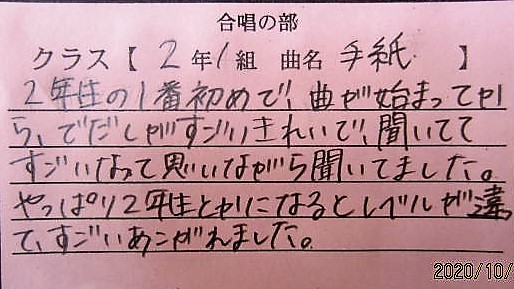 合唱の部
クラス【 2年1組 曲名 手紙 】
2年生の1番初めで、曲が始まってか
ら、でだしがすごいきれいで、聞いてて
すごいなって思いながら聞いてました。
やっぱり2年生とかになるとレベルが違っ
て、すごいあこがれました。
2020/10/